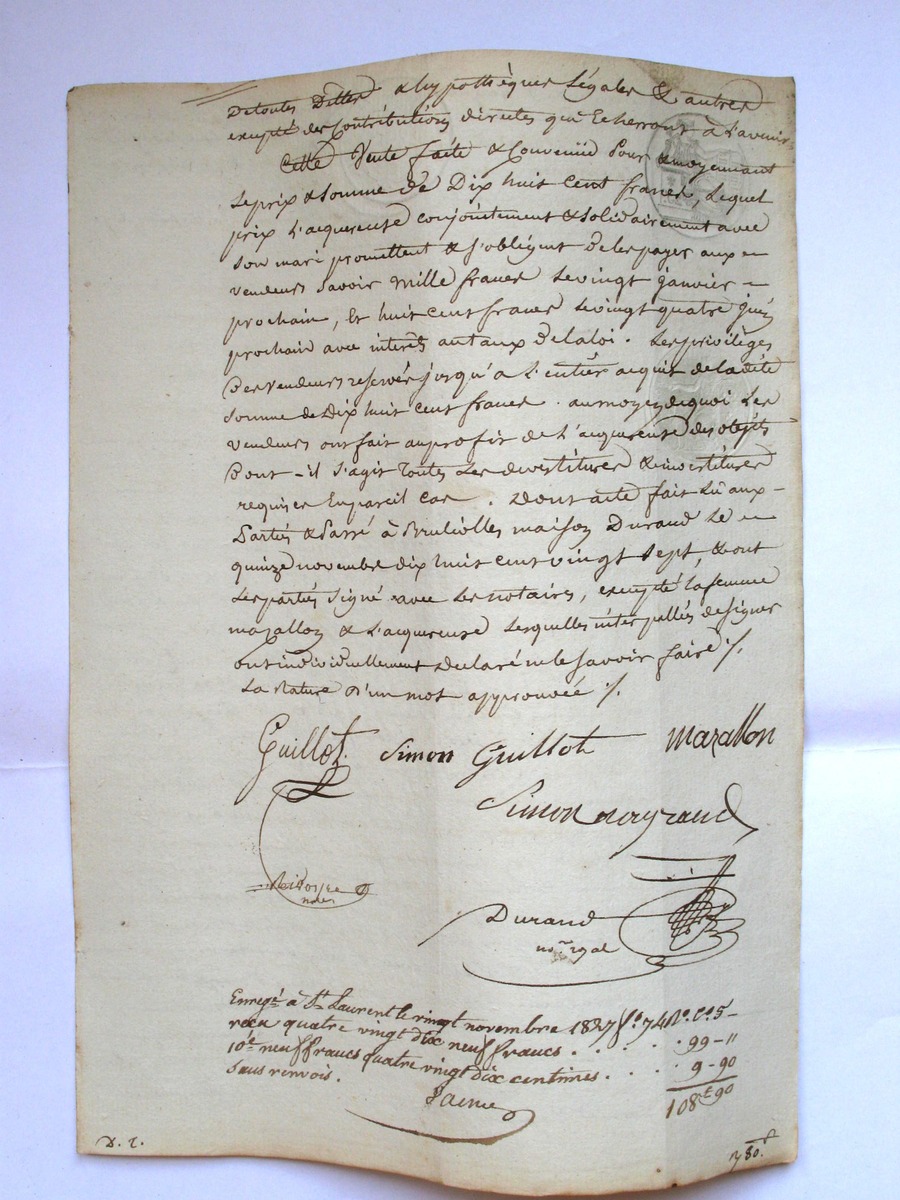 De toutes Dettes & hypothèques Légales & autres
excepté des Contributions directes qui Echerront à L'avenir
Cette Vente faite & Convenüe Pour & moyennant
Le prix & Somme de Dix huit Cent francs, Lequel
prix L'acquereuse conjointement & Solidairement avec
Son mari promettent & s'obligent de les payer aux
vendeurs Savoir mille francs Le vingt janvier
prochain, Et huit Cent francs Le vingt quatre juin
prochain avec interêts au taux de la loi. Les privilèges
Des vendeurs reservés jusqu'à L'entier acquit de la dite
Somme de Dix huit Cent francs. au moyen de quoi Les
vendeurs ont fait au profit de L'acquereuse des objets
Dont-il S'agit Toutes Les devestitures & investitures
requises En pareil Cas. Dont acte fait Lu aux
Parties & Passé à Brulliolles maison Durand Le
quinze novembre dix huit Cent vingt Sept, & ont
Les parties Signé avec Les notaires, excepté la femme
mazallon & L'acquereuse Lesquelles interpellées de signer
ont individuellement declaré ne le Savoir faire ./.
La rature d'un mot approuvée ./.
Guillot. Simon Guillot mazallon
Simon noyraud
notre
Durand
nore. ryal
Enregé. à St. Laurent le vingt novembre 1827 fo. 74 No. Ces. 5
reçu quatre vingt dix neuf francs . . . . . 99-"
10e. neuf francs quatre vingt dix centimes . . . . 9-90
Sans renvois. 108f 90
D. T.